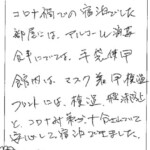 コロナ禍での宿泊でした
部屋には、アルコール消毒
食事については、手袋使用
館内は、マスク着用推進
フロントには、検温、
と、コロナ対策が十分とられていて
安心して宿泊できました。